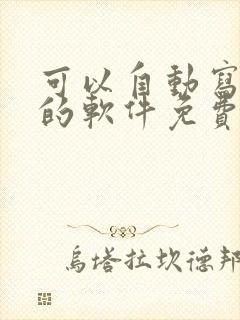 可以自動寫
的軟件免費
烏塔拉坎德邦